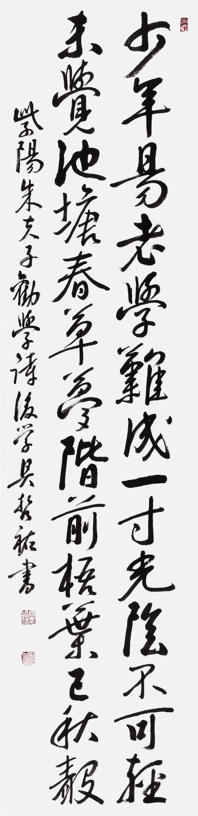 少年易老學難成一寸光陰不可輕
未覺池塘春草夢階前梧葉已秋聲
紫陽朱夫子勸學詩後學吳哲祐書